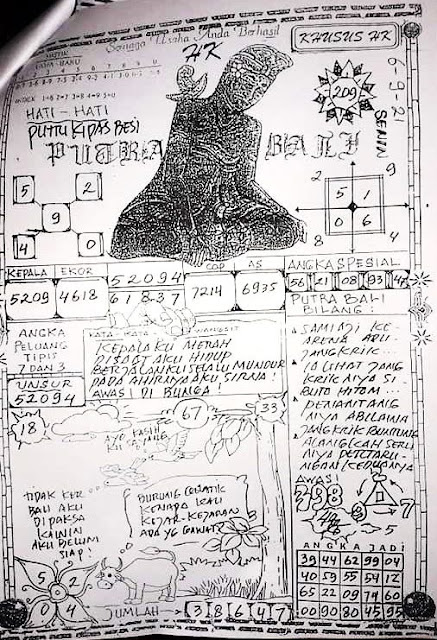 Semoga Usaha Anda Berhasil
HK
KHUSUS HK
6-9-21
SENIN
INDEX
HATI-HATI
PUTU KIPAS BESI
PUTRA BALI
209
5 2
9
4 0
2 9
5 1
0 6
8 4
KEPALA EKOR 52094 COP AS
5209 4618 61837 7214 6935
ANGKA SPESIAL
56 21 08 93 47
PUTRA BALI
BILANG:
ANGKA
PELUANG
TIPIS
7 DAN 3
UNSUR
52094
KEPALAKU MERAH
DISAAT AKU HIDUP
BERJALANKU SELALU MUNDUR
PADA AHIRNYA AKU SIRNA!
AWAS! DI BUNGA!
SAMI AJI KE-
ARENA ADU
JANGKRIK...
IA LIHAT JANG
KRIKNYA SI
BUTO HITAM...
DENANTANG
NYA ABILAWA
JANGKRIK BUNTUNG
ALANGKAH SERU
NYA PERTARU-
NGAN KEDUANYA
AWAS!
798
7
5
18
67
33
AYO KASIH
TIDAK KER
BALI AKU
DIPAKSA
KAWIN
AKU BELUM
SIAP!
BURUNG CERATIK
KENAPA KAU
KEJAR-KEJARAN
ADA YG GAWAT?
5 2
0 4
JUMLAH → 3 8 6 4 7
ANGKA JADI
39 44 62 99 04
40 59 55 54 12
65 22 09 74 60
00 90 80 45 95